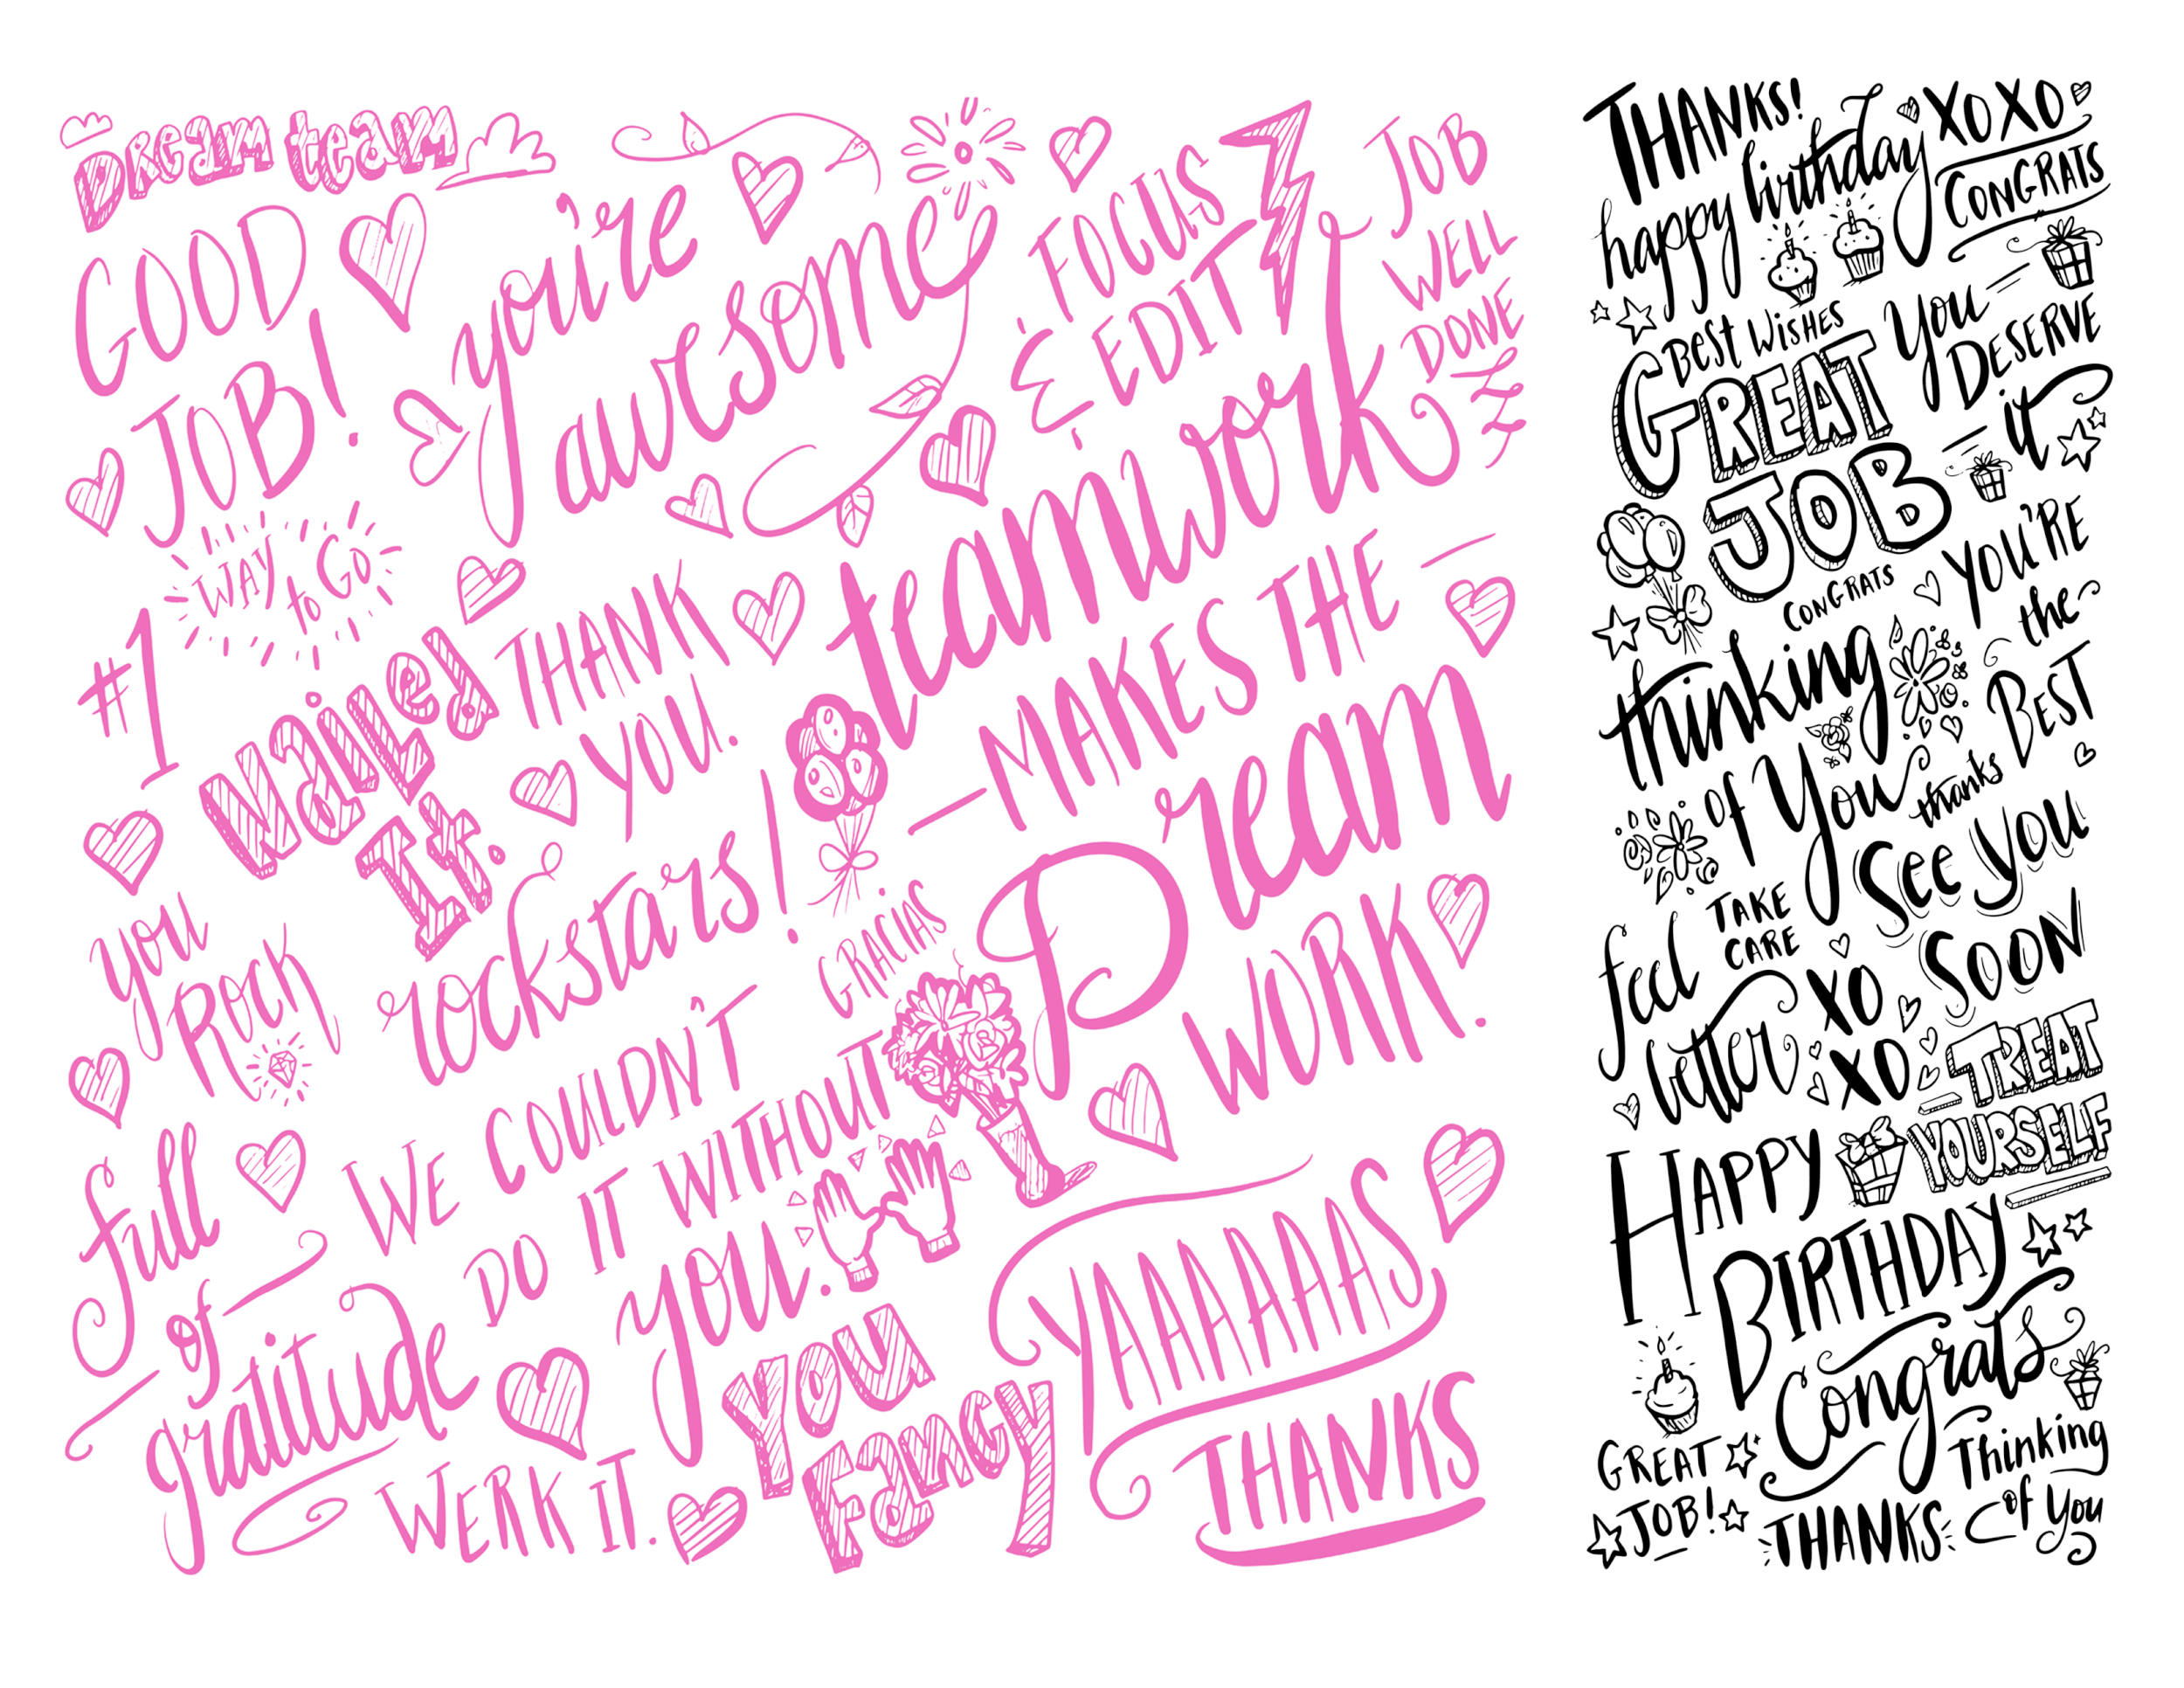 Dream team
GOOD
JOB!
you're
awesome
FOCUS
& EDIT
JOB
WELL
DONE
WAY
to GO
#1
Nailed
It.
THANK
YOU.
teamwork
MAKES THE
Dream
WORK.
you
Rock
rockstars!
GRACIAS
full
of
gratitude
WE COULDN'T
DO IT WITHOUT
you.
WERK IT.
You
Fancy
YAAAAAAS
THANKS
THANKS!
happy birthday
XOXO
CONGRATS
BEST WISHES
GREAT
JOB
You
DESERVE
it
CONGRATS
YOU'RE
the
BEST
thinking
of You
thanks
See you
SOON
feel
better
TAKE
CARE
XO
XO
TREAT
YOURSELF
HAPPY
BIRTHDAY
Congrats
GREAT
JOB!
THANKS
Thinking
of You